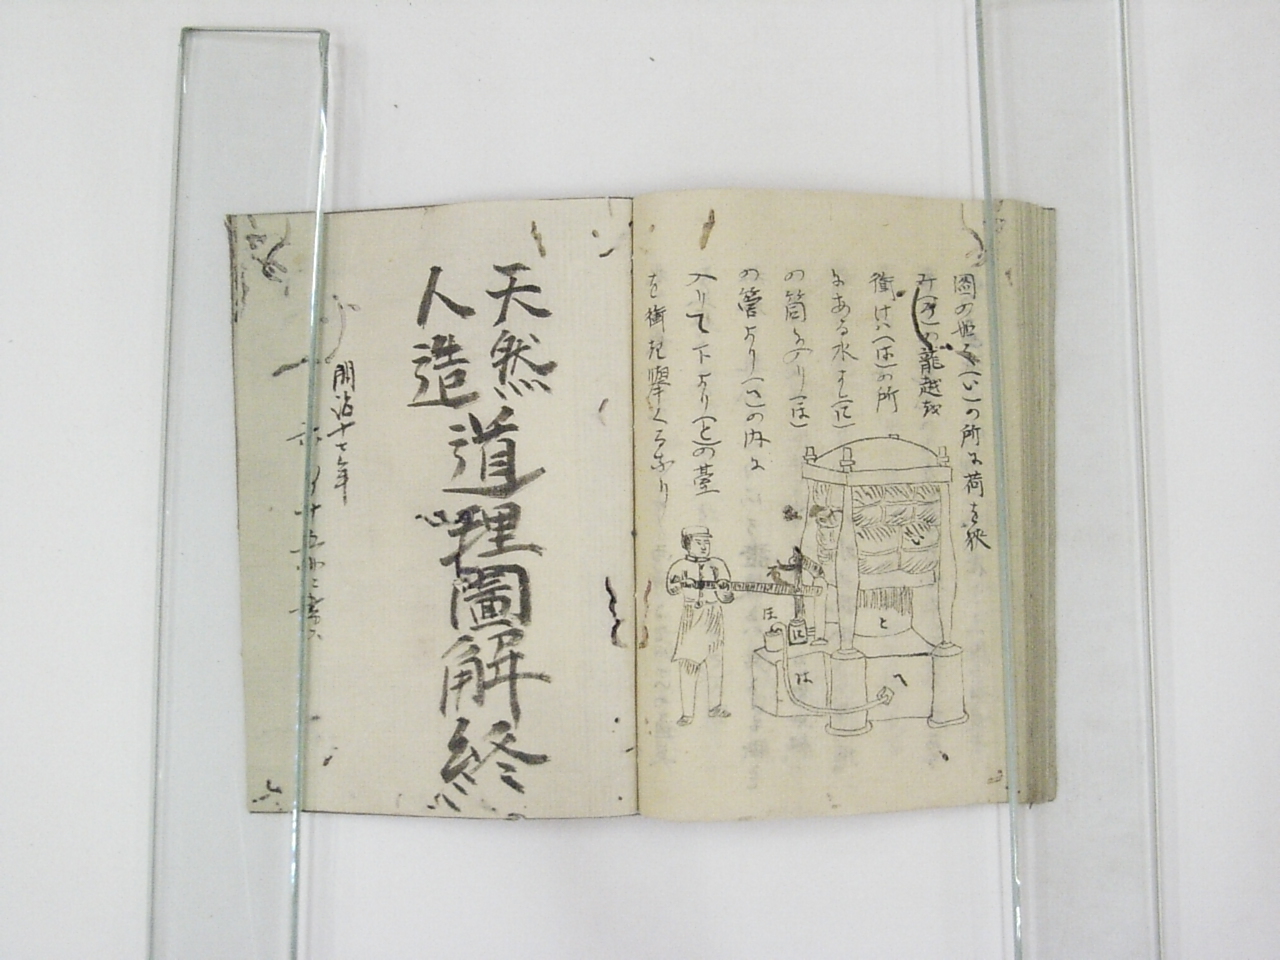 圖の如く(い)の所に荷を狹
の龍越或
衝けハ(は)の所
にある水も(に)
の筒に入り(ほ)
の管より(へ)の内に
入りて下より(と)の臺
を衝起擧くるなり
い
ほ
に
は
へ
と
天然
人造
道理圖解終
明治十七年